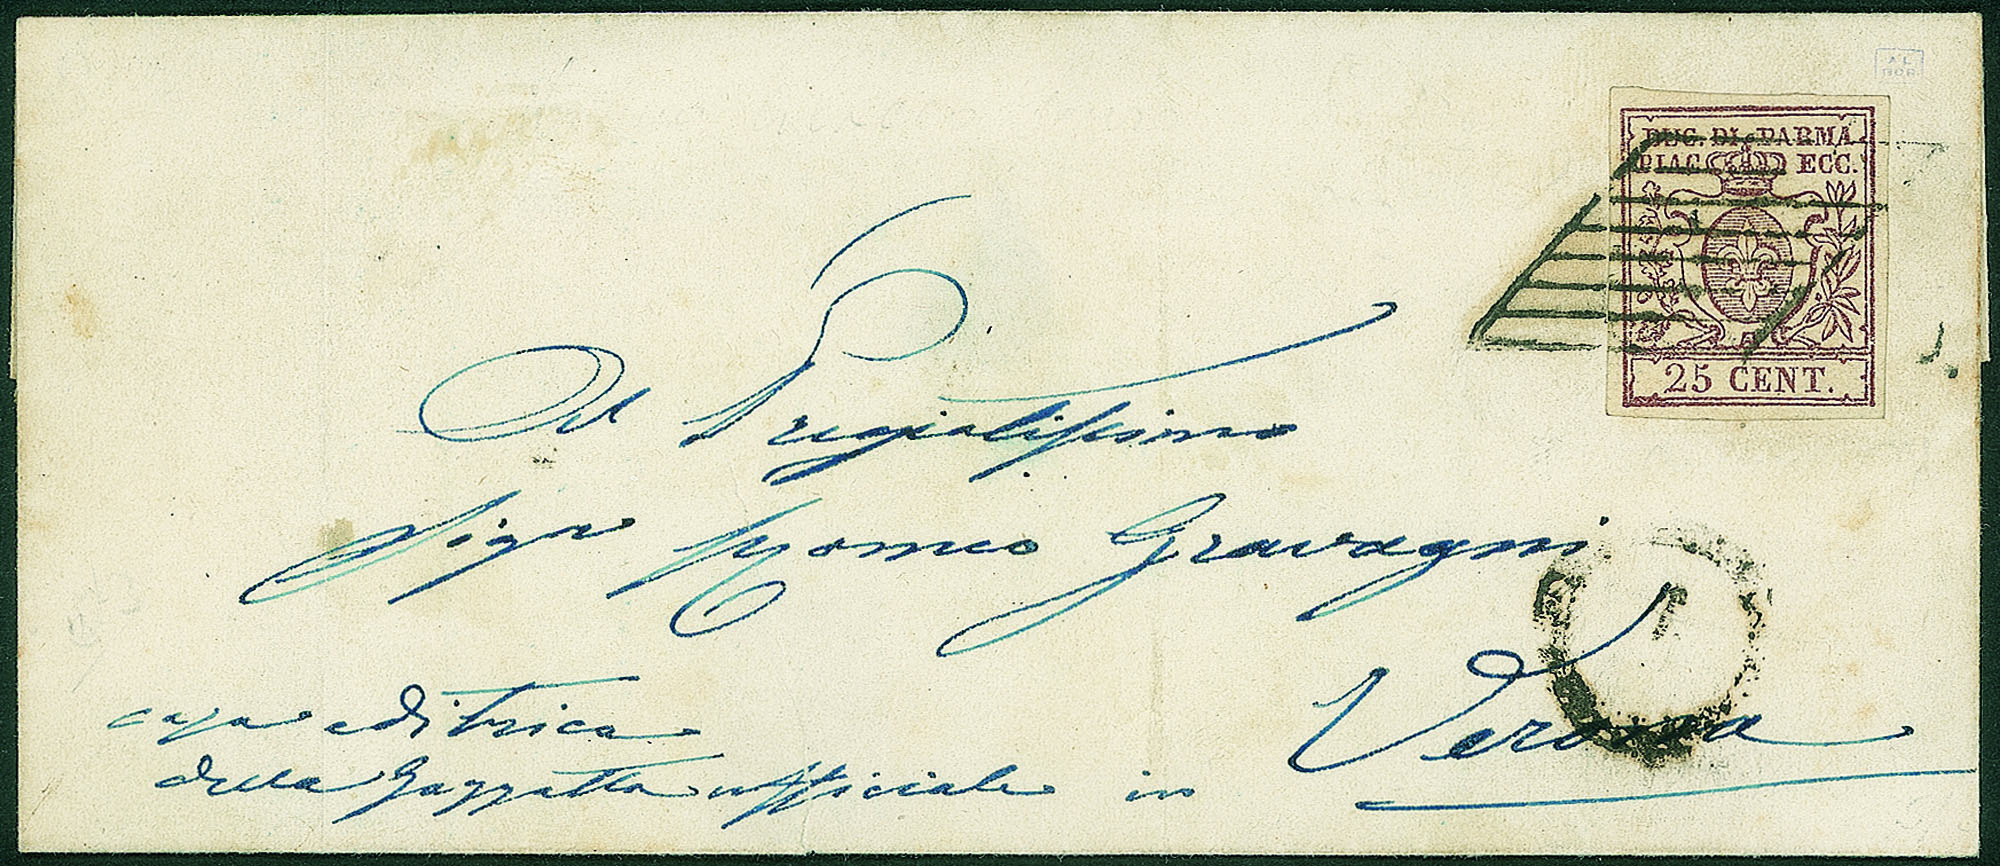 DUC. DI PARMA
PIAC. ECC.
25 CENT.
Al Pregiatissimo
Sigr Romeo Gravagni
Verona
casa editrice
della Gazzetta ufficiale in